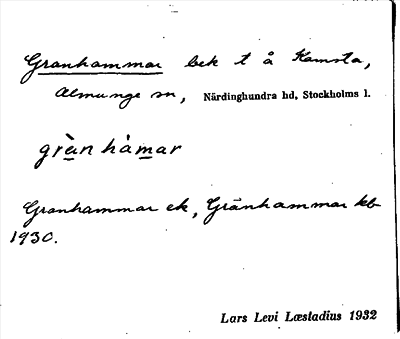 Granhammar bek t å Kamsta,
Almunge sn, Närdinghundra hd, Stockholms l.
gràn hàmar
Granhammar ek, Gränhammar kb
1930.
Lars Levi Læstadius 1932